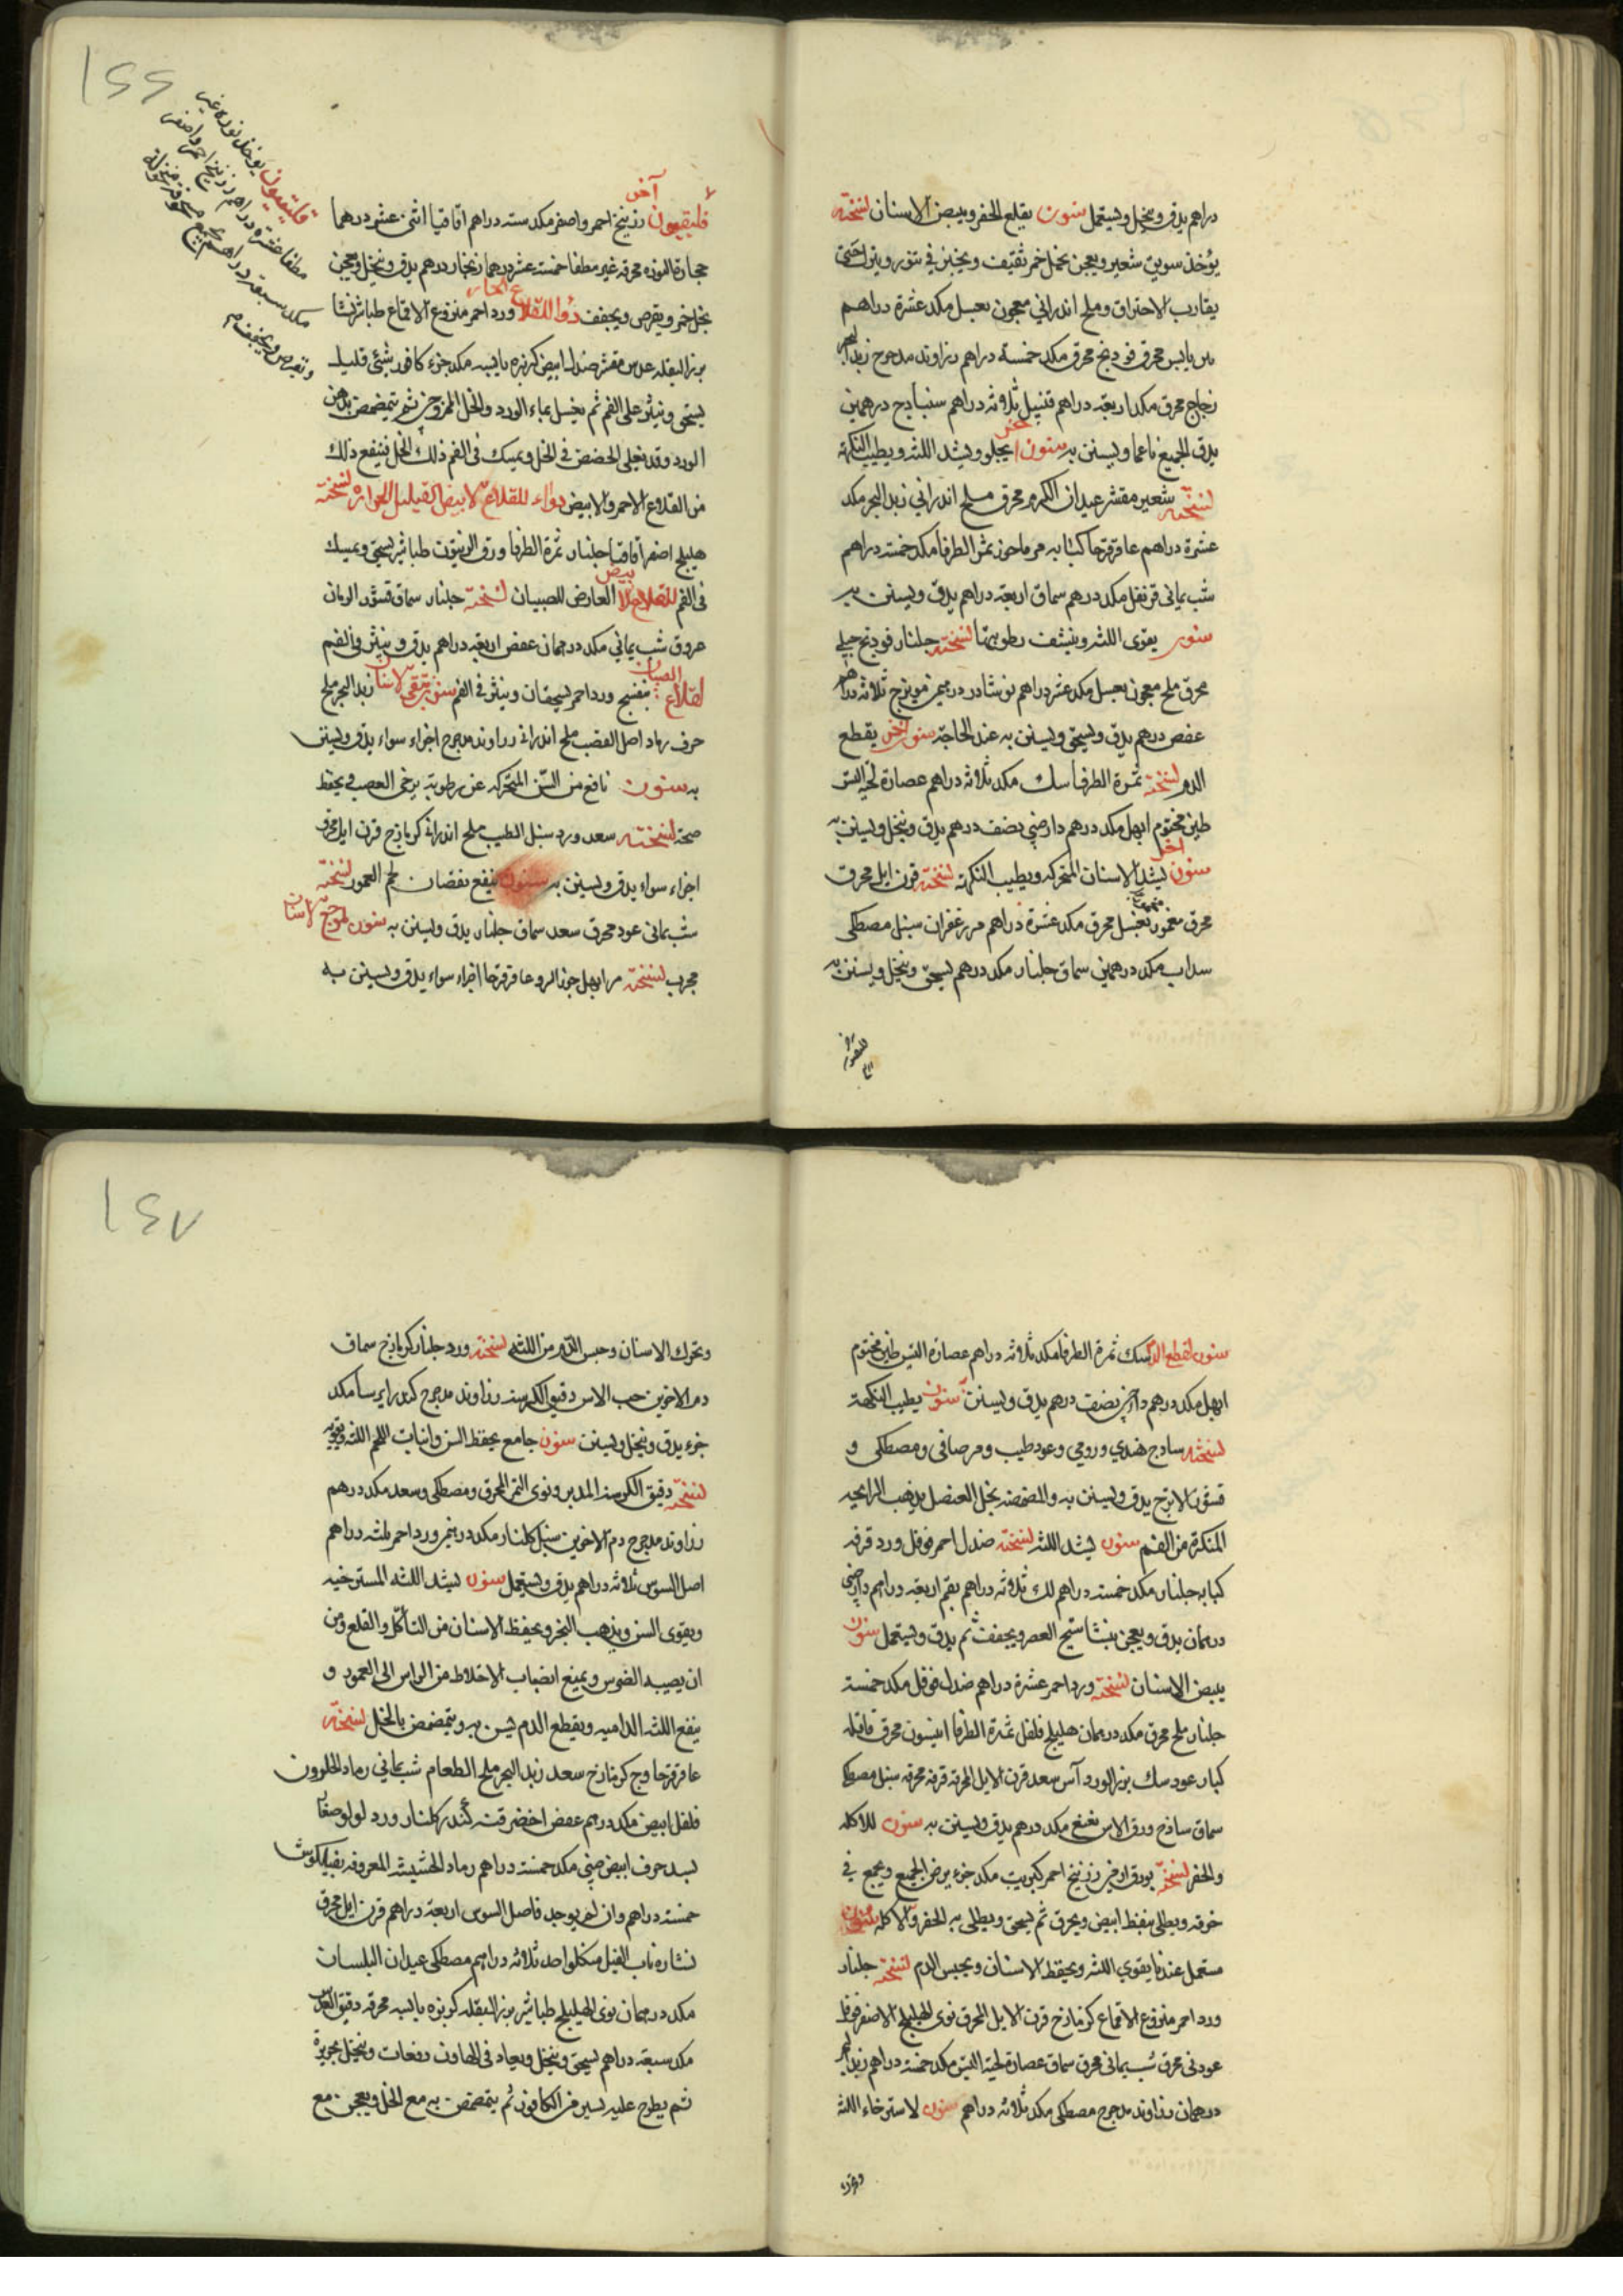 دراهم يدق وينخل ويستعمل سنون يقلع الحفر ويبيض الاسنان نسخته
يؤخذ سويق شعير ويعجن بخل خمر ثقيف ويخبز في تنور ويترك حتى
يقارب الاحتراق وملح اندراني معجون بعسل مكد عشرة دراهم
محرق فودنج محرق مكد خمسة دراهم زراوند مدحرج زبد البحر
زجاج محرق مكد اربعة دراهم قنبيل ثلاثه دراهم سنبادج درهمين
يدق الجميع ناعما ويستن به سنون اخر يجلو ويشد اللثه ويطيب النكهة
نسخته شعير مقشر عيدان الكرم محرق ملح اندراني زبد البحر مكد
عشرة دراهم عاقرقرحا كبابه مرماحوز ثمر الطرفا مكد خمسة دراهم
شب يماني قرنفل مكد درهم سماق اربعة دراهم يدق ويستن به
سنون يقوى اللثه وينشف رطوبتها نسخته جلنار فودنج جبلي
محرق ملح معجون بعسل مكد عشر دراهم نوشادر درهمين ميويزج ثلاثه دراهم
عفص درهم يدق ويسحق ويستن به عند الحاجة سنون اخر يقطع
الدم نسخته ثمرة الطرفا سك مكد ثلاثه دراهم عصارة لحية التيس
طين مختوم ابهل مكد درهم دارصيني نصف درهم يدق وينخل ويستن به
سنون اخر يشد الاسنان المتحركه ويطيب النكهة نسخته قرن ايل محرق
محرق معجون بعسل محرق مكد عشرة دراهم مر زعفران سنبل مصطكى
سداب مكد درهمين سماق جلنار مكد درهم يسحق وينخل ويستن به
١٤٤
قلقيديون يوخذ نوره غير
مطفا عشرة دراهم زرنيخ احمر واصفر
مكد سبعة دراهم
ويقرص ويجفف
آخر
قلقيديون زرنيخ احمر واصفر مكد سته دراهم اقاقيا اثنى عشر درهما
حجارة النوره محرقه غير مطفا خمسة عشر درهما زنجار درهم يدق وينخل ويعجن
بخل خمر ويقرص ويجفف دوا للقلاع الحار ورد احمر منزوع الاقماع طباشير نشا
بزر البقله عدس مقشر صندل ابيض كزبره يابسه مكد جزء كافور شئى قليل
يسحق وينثر على الفم ثم يغسل بماء الورد والخل الممزوجين ثم يتمضمض بدهن
الورد وقد يغلى الحضض في الخل ويمسك فى الفم ذلك الخل فينفع ذلك
من القلاع الاحمر والابيض دواء للقلاع الابيض القليل الحراره نسخته
هليلج اصفر اقاقيا جلنار ثمرة الطرفا ورق الزيتون طباشير يسحق ويمسك
فى الفم للقلاع الابيض العارض للصبيان نسخته جلنار سماق قشور الرمان
عروق شب يماني مكد درهمان عفص اربعة دراهم يدق وينثر في الفم
لقلاع الصبيان بنفسج ورد احمر يسحقان وينثر في الفم سنون ينقى الاسنان زبد البحر ملح
خزف رماد اصل القصب ملح اندرانى زراوند مدحرج اجزاء سواء يدق ويستن
به سنون نافع من السن المتحركه عن رطوبة يرخى العصب ويحفظ
صحته نسخته سعد ورد سنبل الطيب ملح اندرانى كزمازج قرن ايل محرق
اجزاء سواء يدق ويستن به سنون ينفع نقصان لحم العمور نسخته
شب يمانى عود محرق سعد سماق جلنار يدق ويستن به سنون لوجع الاسنان
مجرب نسخته مر ابهل جوز السرو عاقرقرحا اجزاء سواء يدق ويستن به
سنون لقطع الدم سك ثمرة الطرفا مكد ثلاثه دراهم عصارة التيس طين مختوم
ابهل مكد درهم دارصيني نصف درهم يدق ويستن سنون يطيب النكهة
نسخته سادج هندي ورومي وعود طيب ومر صافى ومصطكى و
قشور الاترج يدق ويستن به والمضمضه بخل العنصل يذهب الرايحه
المنكرة من الفم سنون يشد اللثه نسخته صندل احمر فوفل ورد قرفه
كبابه جلنار مكد خمسة دراهم لك ثلاثه دراهم بقم اربعة دراهم دارصيني
درهمان يدق ويعجن ويجفف ثم يدق ويستعمل سنون
يبيض الاسنان نسخته ورد احمر عشرة دراهم صندل فوفل مكد خمسة
جلنار ملح محرق مكد درهمان هليلج فلفل ثمرة الطرفا انيسون محرق قاقله
كبار عود سك بزر الورد آس سعد قرن الايل المحرقه قرفه محرقه سنبل مصطكى
سماق سادج ورق الاس مكد درهم يدق ويستن به سنون للاكله
والحفر نسخته بورق ارمني زرنيخ احمر كبريت مكد جزء يرض الجميع ويجمع في
خرقه ويطلى بنفط ابيض ويحرق ثم يسحق ويطلى به الحفر والاكله سنون
مستعمل عندنا يقوي اللثه ويحفظ الاسنان ويحبس الدم نسخته جلنار
ورد احمر منزوع الاقماع كزمازج قرن الايل المحرق نوى الهليلج الاصفر فوفل
عود نى محرق شب يمانى محرق سماق عصارة لحية التيس مكد خمسة دراهم زبد البحر
درهمان زراوند مدحرج مصطكى مكد ثلاثه دراهم سنون لاسترخاء اللثه
وتحرك
١٤٧
وتحرك الاسنان وحبس الدم من اللثه نسخته ورد جلنار كزمازج سماق
دم الاخوين حب الاس دقيق الكرسنه زراوند مدحرج كندر ايرسا مكد
جزء يدق وينخل ويستن سنون جامع يحفظ السن وانبات اللحم اللثه ويقويه
نسخته دقيق الكرسنه المدبر ونوى التمر المحرق ومصطكى وسعد مكد درهم
زراوند مدحرج دم الاخوين سنبل كلنار مكد درهمين ورد احمر ثلثه دراهم
اصل السوس ثلاثه دراهم يدق ويستعمل سنون يشد اللثه المسترخيه
ويقوى السن ويذهب البخر ويحفظ الاسنان من التأكل والقلع ومن
ان يصيبه الضرس ويمنع انصباب الاخلاط من الراس الى العمور و
ينفع اللثه الداميه ويقطع الدم يستن به ويتمضمض بالخل نسخته
عاقرقرحا وج كزمازج سعد زبد البحر ملح الطعام شب يماني رماد الحلزون
فلفل ابيض مكد درهم عفص اخضر قنه كندر كلنار ورد لولو صغار
بسد خزف ابيض صيني مكد خمسة دراهم رماد الحشيشه المعروفه
خمسة دراهم وان لم يوجد فاصل السوس اربعة دراهم قرن ايل محرق
نشاره ناب الفيل من كل واحد ثلاثه دراهم مصطكى عيدان البلسان
مكد درهمان نوى الهليلج طباشير بزر البقله كزبره يابسه محرقه دقيق العدس
مكد سبعة دراهم يسحق وينخل ويعاد فى الهاون دفعات وينخل بحريرة
ثم يطرح عليه يسير من الكافور ثم يتمضمض به مع الخل ويعجن مع